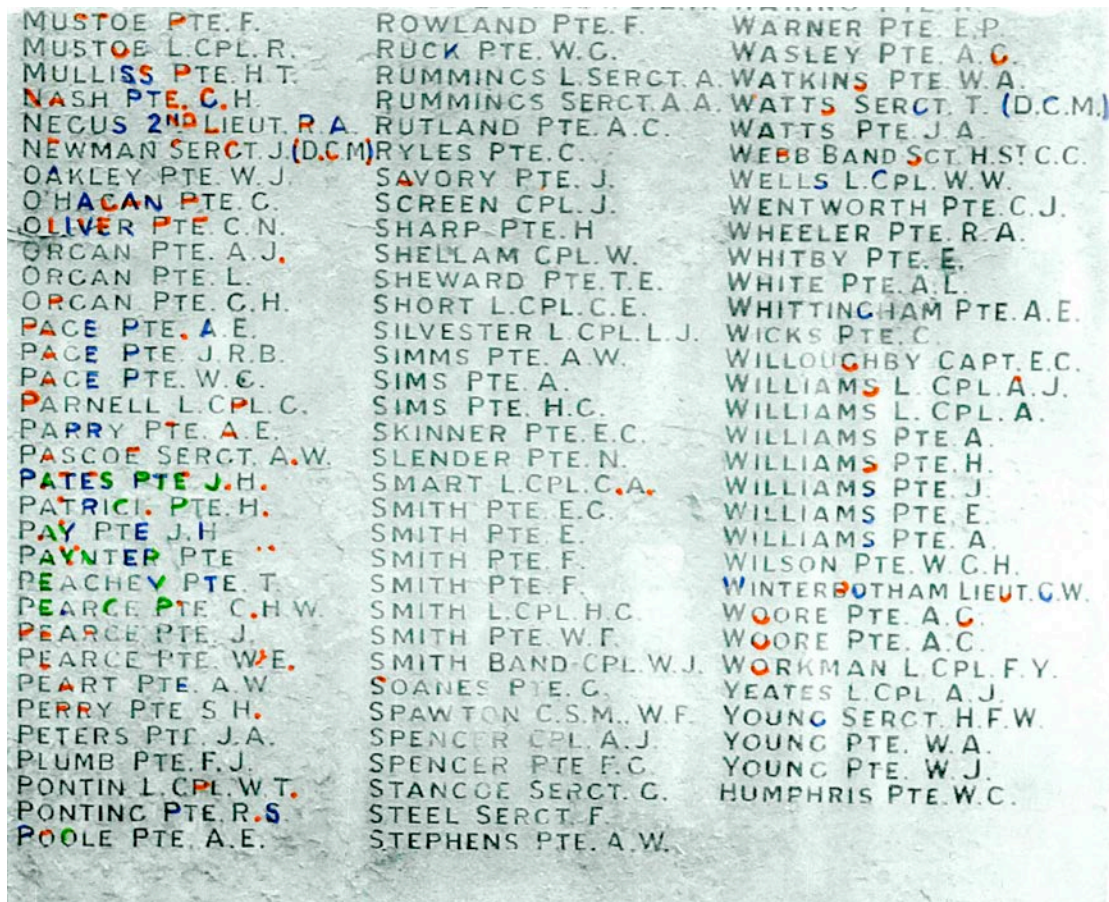 MUSTOE PTE. F.
MUSTOE L.CPL. R.
MULLISS PTE. H. T.
NASH PTE. C. H.
NEGUS 2ND LIEUT. R. A.
NEWMAN SERGT. J. (D.C.M)
OAKLEY PTE. W. J.
O'HAGAN PTE. C.
OLIVER PTE. C. N.
ORGAN PTE. A. J.
ORGAN PTE. L.
ORGAN PTE. G. H.
PACE PTE. A. E.
PACE PTE. J. R. B.
PACE PTE. W. C.
PARNELL L.CPL. C.
PARRY PTE. A. E.
PASCOE SERGT. A. W.
PATES PTE J. H.
PTE. H.
PAY PTE J. H
PAYNTER PTE
PEACHEY PTE. T.
PEARCE PTE C. H W.
PEARCE PTE. J.
PEARCE PTE. W. E.
PEART PTE. A. W.
PERRY PTE S H.
PETERS PTE J. A.
PLUMB PTE. F. J.
PONTIN L.CPL. W T.
PONTING PTE. R. S
POOLE PTE. A. E.
ROWLAND PTE. F.
RUCK PTE. W. G.
RUMMINGS L. SERGT. A.
RUMMINGS SERGT. A. A.
RUTLAND PTE. A. C.
RYLES PTE. C.
SAVORY PTE. J.
SCREEN CPL. J.
SHARP PTE. H
SHELLAM CPL. W.
SHEWARD PTE. T. E.
SHORT L.CPL. C. E.
SILVESTER L.CPL. L. J.
SIMMS PTE. A. W.
SIMS PTE. A.
SIMS PTE. H. C.
SKINNER PTE. E. C.
SLENDER PTE. N.
SMART L.CPL. C. A.
SMITH PTE. E. C.
SMITH PTE. E.
SMITH PTE. F.
SMITH PTE. F.
SMITH L.CPL. H. C.
SMITH PTE. W. F.
SMITH BAND CPL. W. J.
SOANES PTE. G.
SPAWTON C.S.M. W. F.
SPENCER CPL. A. J.
SPENCER PTE F. G.
STANCOE SERGT. G.
STEEL SERGT. F.
STEPHENS PTE. A. W.
WARNER PTE. E. P.
WASLEY PTE. A. G.
WATKINS PTE W. A.
WATTS SERGT. T. (D.C.M.)
WATTS PTE. J. A.
WEBB BAND SGT. H. ST C. C.
WELLS L.CPL. W. W.
WENTWORTH PTE. C. J.
WHEELER PTE. R. A.
WHITBY PTE. E.
WHITE PTE. A. L.
WHITTINGHAM PTE. A. E.
WICKS PTE. C.
WILLOUGHBY CAPT. E. C.
WILLIAMS L. CPL. A. J.
WILLIAMS L. CPL. A.
WILLIAMS PTE. A.
WILLIAMS PTE. H.
WILLIAMS PTE. J.
WILLIAMS PTE. E.
WILLIAMS PTE. A.
WILSON PTE. W. G. H.
WINTERBOTHAM LIEUT. C. W.
WOORE PTE. A. G.
WOORE PTE. A. C.
WORKMAN L.CPL. F. Y.
YEATES L.CPL. A. J.
YOUNG SERGT. H. F. W.
YOUNG PTE. W. A.
YOUNG PTE. W. J.
HUMPHRIS PTE. W. C.